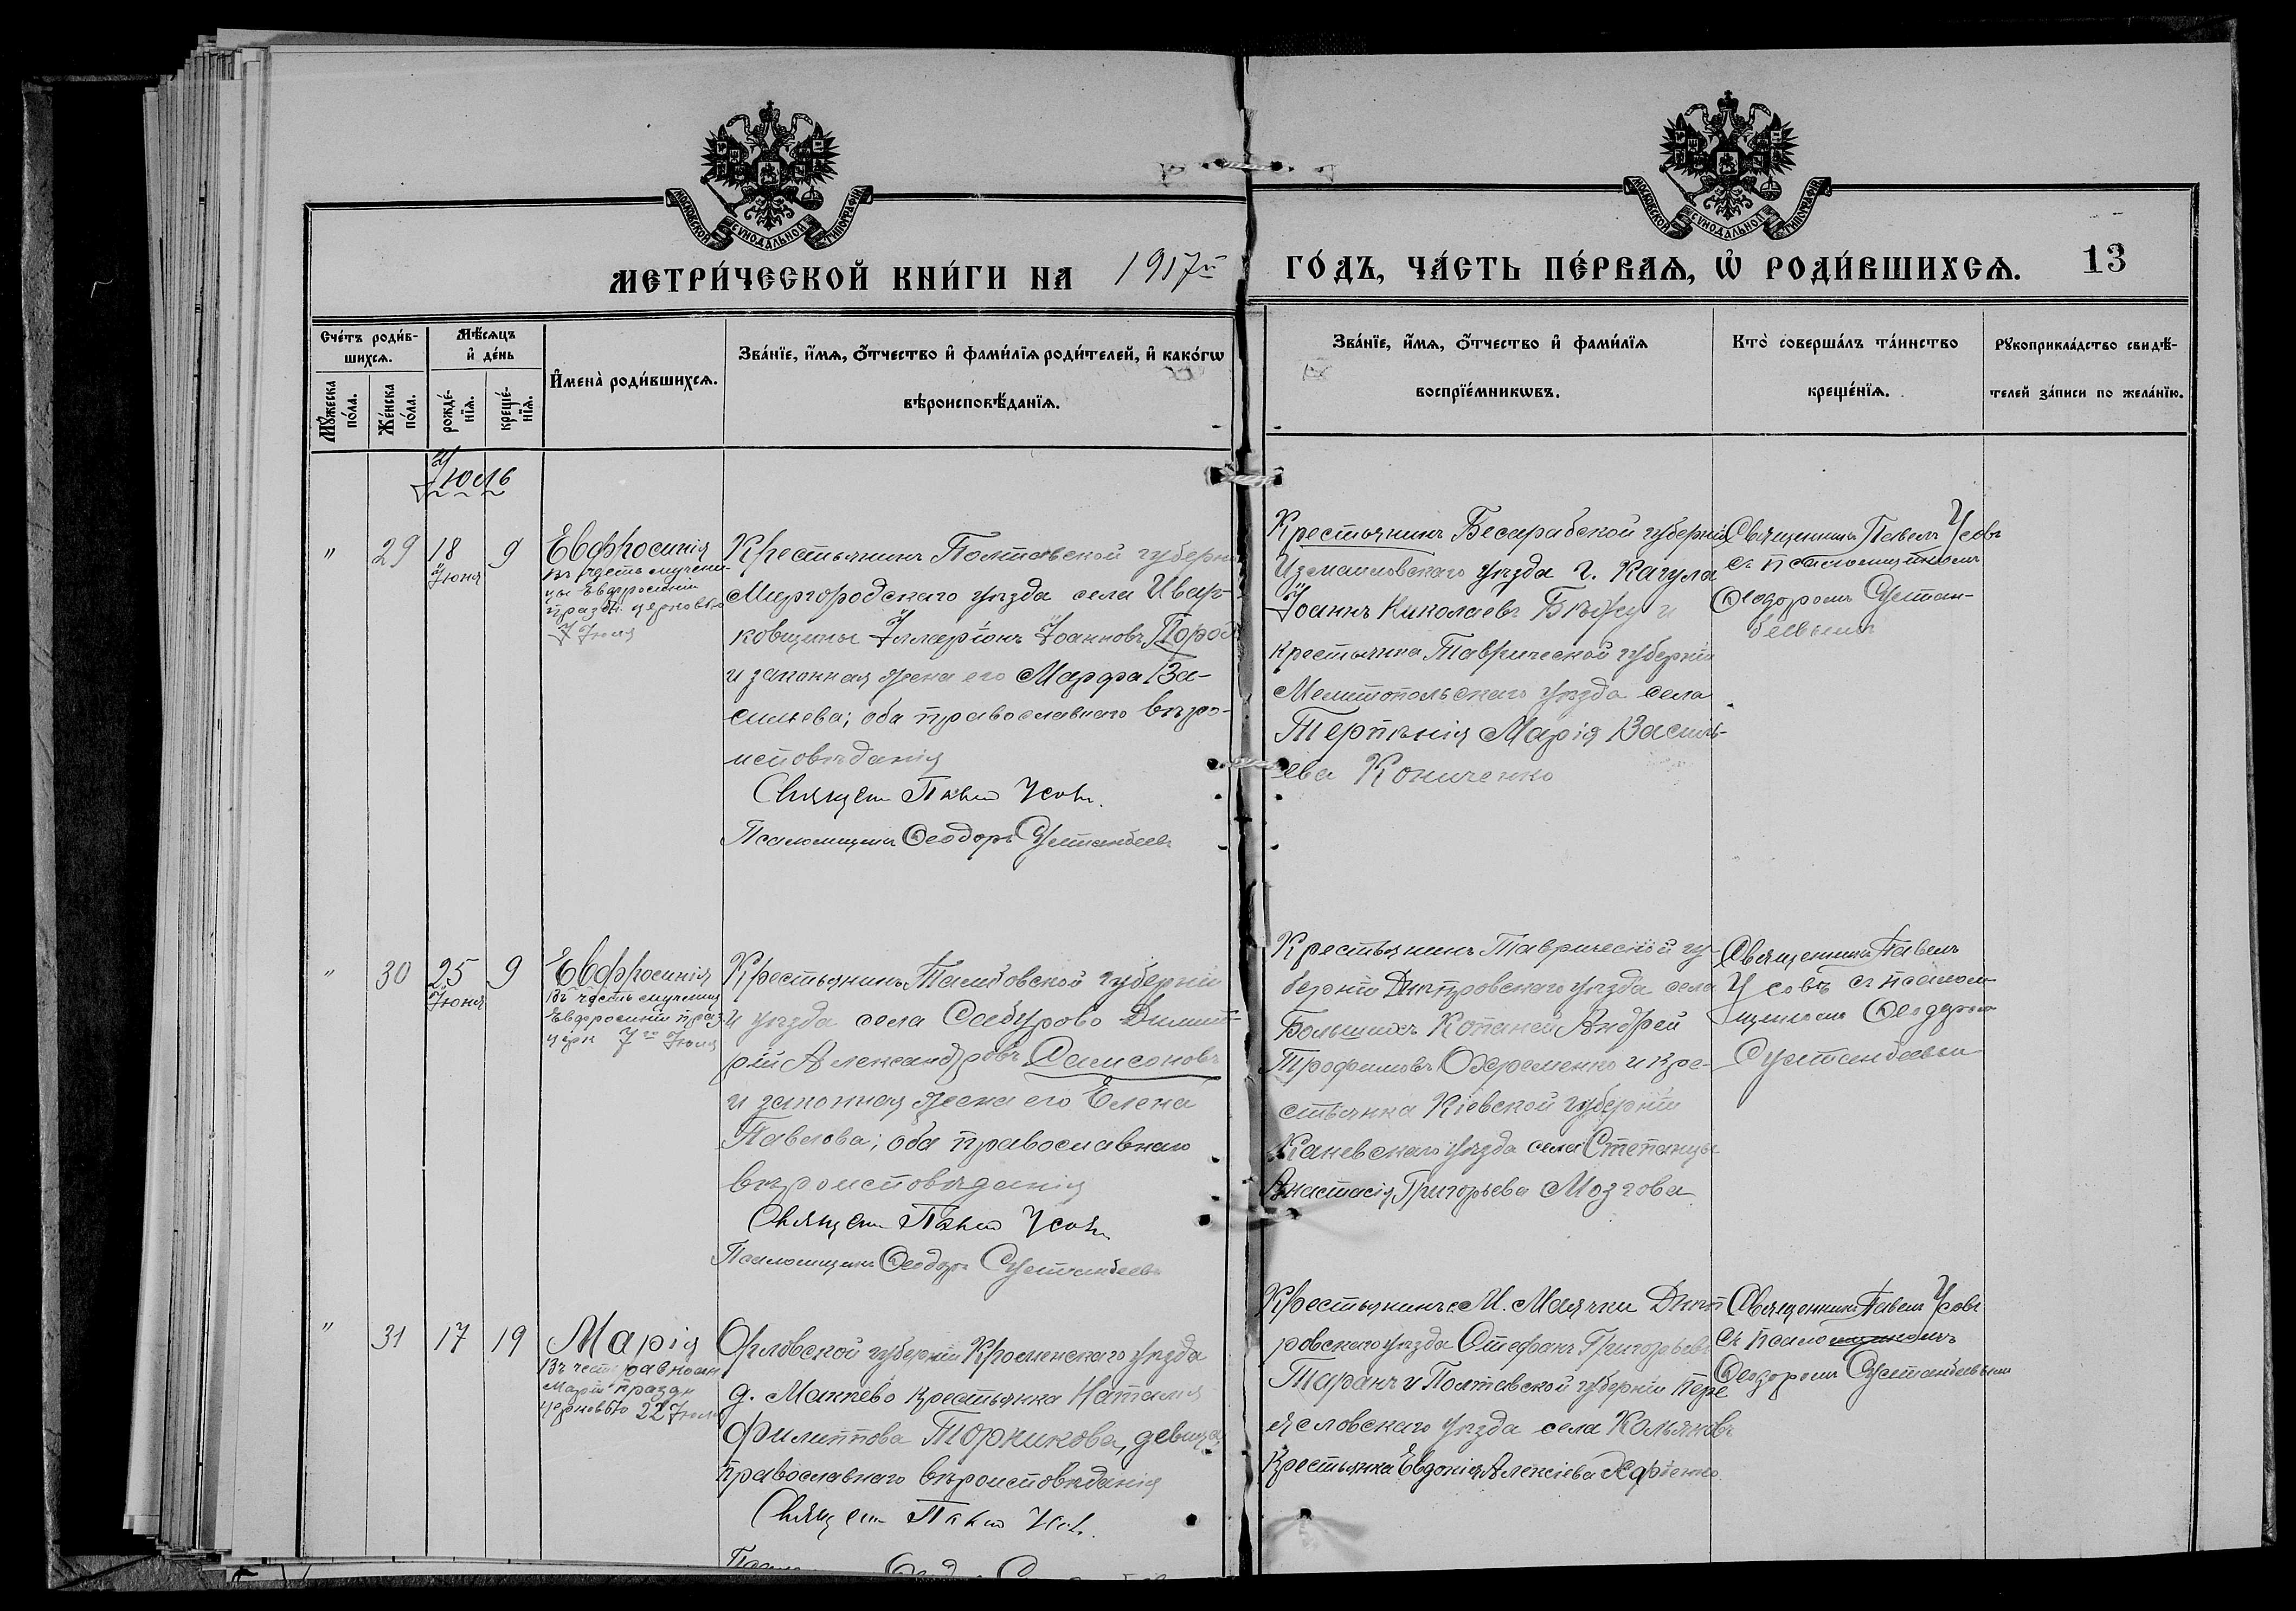 МОСКОВСКОЙ СѴНОДАЛЬНОЙ ТИПОГРАФІИ
МОСКОВСКОЙ СѴНОДАЛЬНОЙ ТИПОГРАФІИ
МЕТРИ́ЧЕСКОЙ КНИ́ГИ НА 1917й
ГО́ДЪ, ЧА́СТЬ ПЕ́РВАѦ, Ѡ РОДИ́ВШИХСѦ. 13
Сче́тъ роди́в-
шихсѧ.
Мꙋ́жеска
по́ла.
Же́нска
по́ла.
Мѣ́сѧцъ
и҆ де́нь
рожде́-
нїѧ.
креще́-
нїѧ.
И҆мена̀ роди́вшихсѧ.
Зва́нїе, и҆́мѧ, ѻ҆́тчество и҆ фами́лїѧ роди́телей, и҆ како́гѡ
вѣроисповѣ́данїѧ.
Зва́нїе, и҆́мѧ, ѻ҆́тчество и҆ фами́лїѧ
воспрїе́мникѡвъ.
Кто̀ соверша́лъ та́инство
креще́нїѧ.
Рꙋкоприкла́дство свидѣ́-
телей за́писи по жела́нїю.
Іюль
" 29 18 9
Іюня
Евфросинія
въ честь мучени-
цы Евфросиніи
праздн. церковью
7 Іюля
Крестьянинъ Полтавской губерн
Миргородскаго уѣзда села Ивар-
ковщины Іларіонъ Іоанновъ
и законная жена его Марфа Ва-
сильева; оба православнаго вѣро-
исповѣданія
Священ Павел Усовъ.
Псаломщикъ Ѳеодоръ
Крестьянинъ Бесарабской губерніи
Измаиловскаго уѣзда г. Кагула
Іоаннъ Николаевъ и
крестьянка Таврической губерніи
Мелитопольскаго уѣзда села
Терпѣнія Марія Василь-
ева Кониченко
Священникъ Павелъ Усовъ
съ псаломщикомъ
Ѳеодоромъ
" 30 25 9
Іюня
Евфросинія
Въ честь мучениц
Евфросиніи праз.
церк 7го Іюля
Крестьянинъ Тамбовской губерніи
и уѣзда села Сабурово Димит-
рій Александровъ Самсоновъ
и законная жена его Елена
Павлова; оба православнаго
вѣроисповѣданія
Священ Павел Усовъ
Псаломщикъ Ѳеодоръ
Крестьянинъ Таврической гу-
берніи Днѣпровскаго уѣзда села
Большихъ Копаней Андрей
Трофимовъ Охременко и кре-
стьянка Кіевской губерніи
Каневскаго уѣзда села Степанцы
Анастасія Григорьева Мозгова
Священникъ Павелъ
Усовъ съ псалом-
щикомъ Ѳеодоромъ
" 31 17 19
Марія
Въ чест равноап
Маріи праздн
церковью 22 Іюля
Орловской губерніи Кромскаго уѣзда
д. Макѣево крестьянка Наталія
Филиппова Торчикова, девица,
православнаго вѣроисповѣданія
Священ Павел Усов.
Крестьянинъ с. М. Маячки Днѣп
ровскаго уѣзда Стефанъ Григорьевъ
Таранъ и Полтавской губерніи Пере
яславскаго уѣзда села
крестьянка Евдокія Алексіева
Священникъ Павелъ Усовъ
съ псаломщикомъ
Ѳеодоромъ